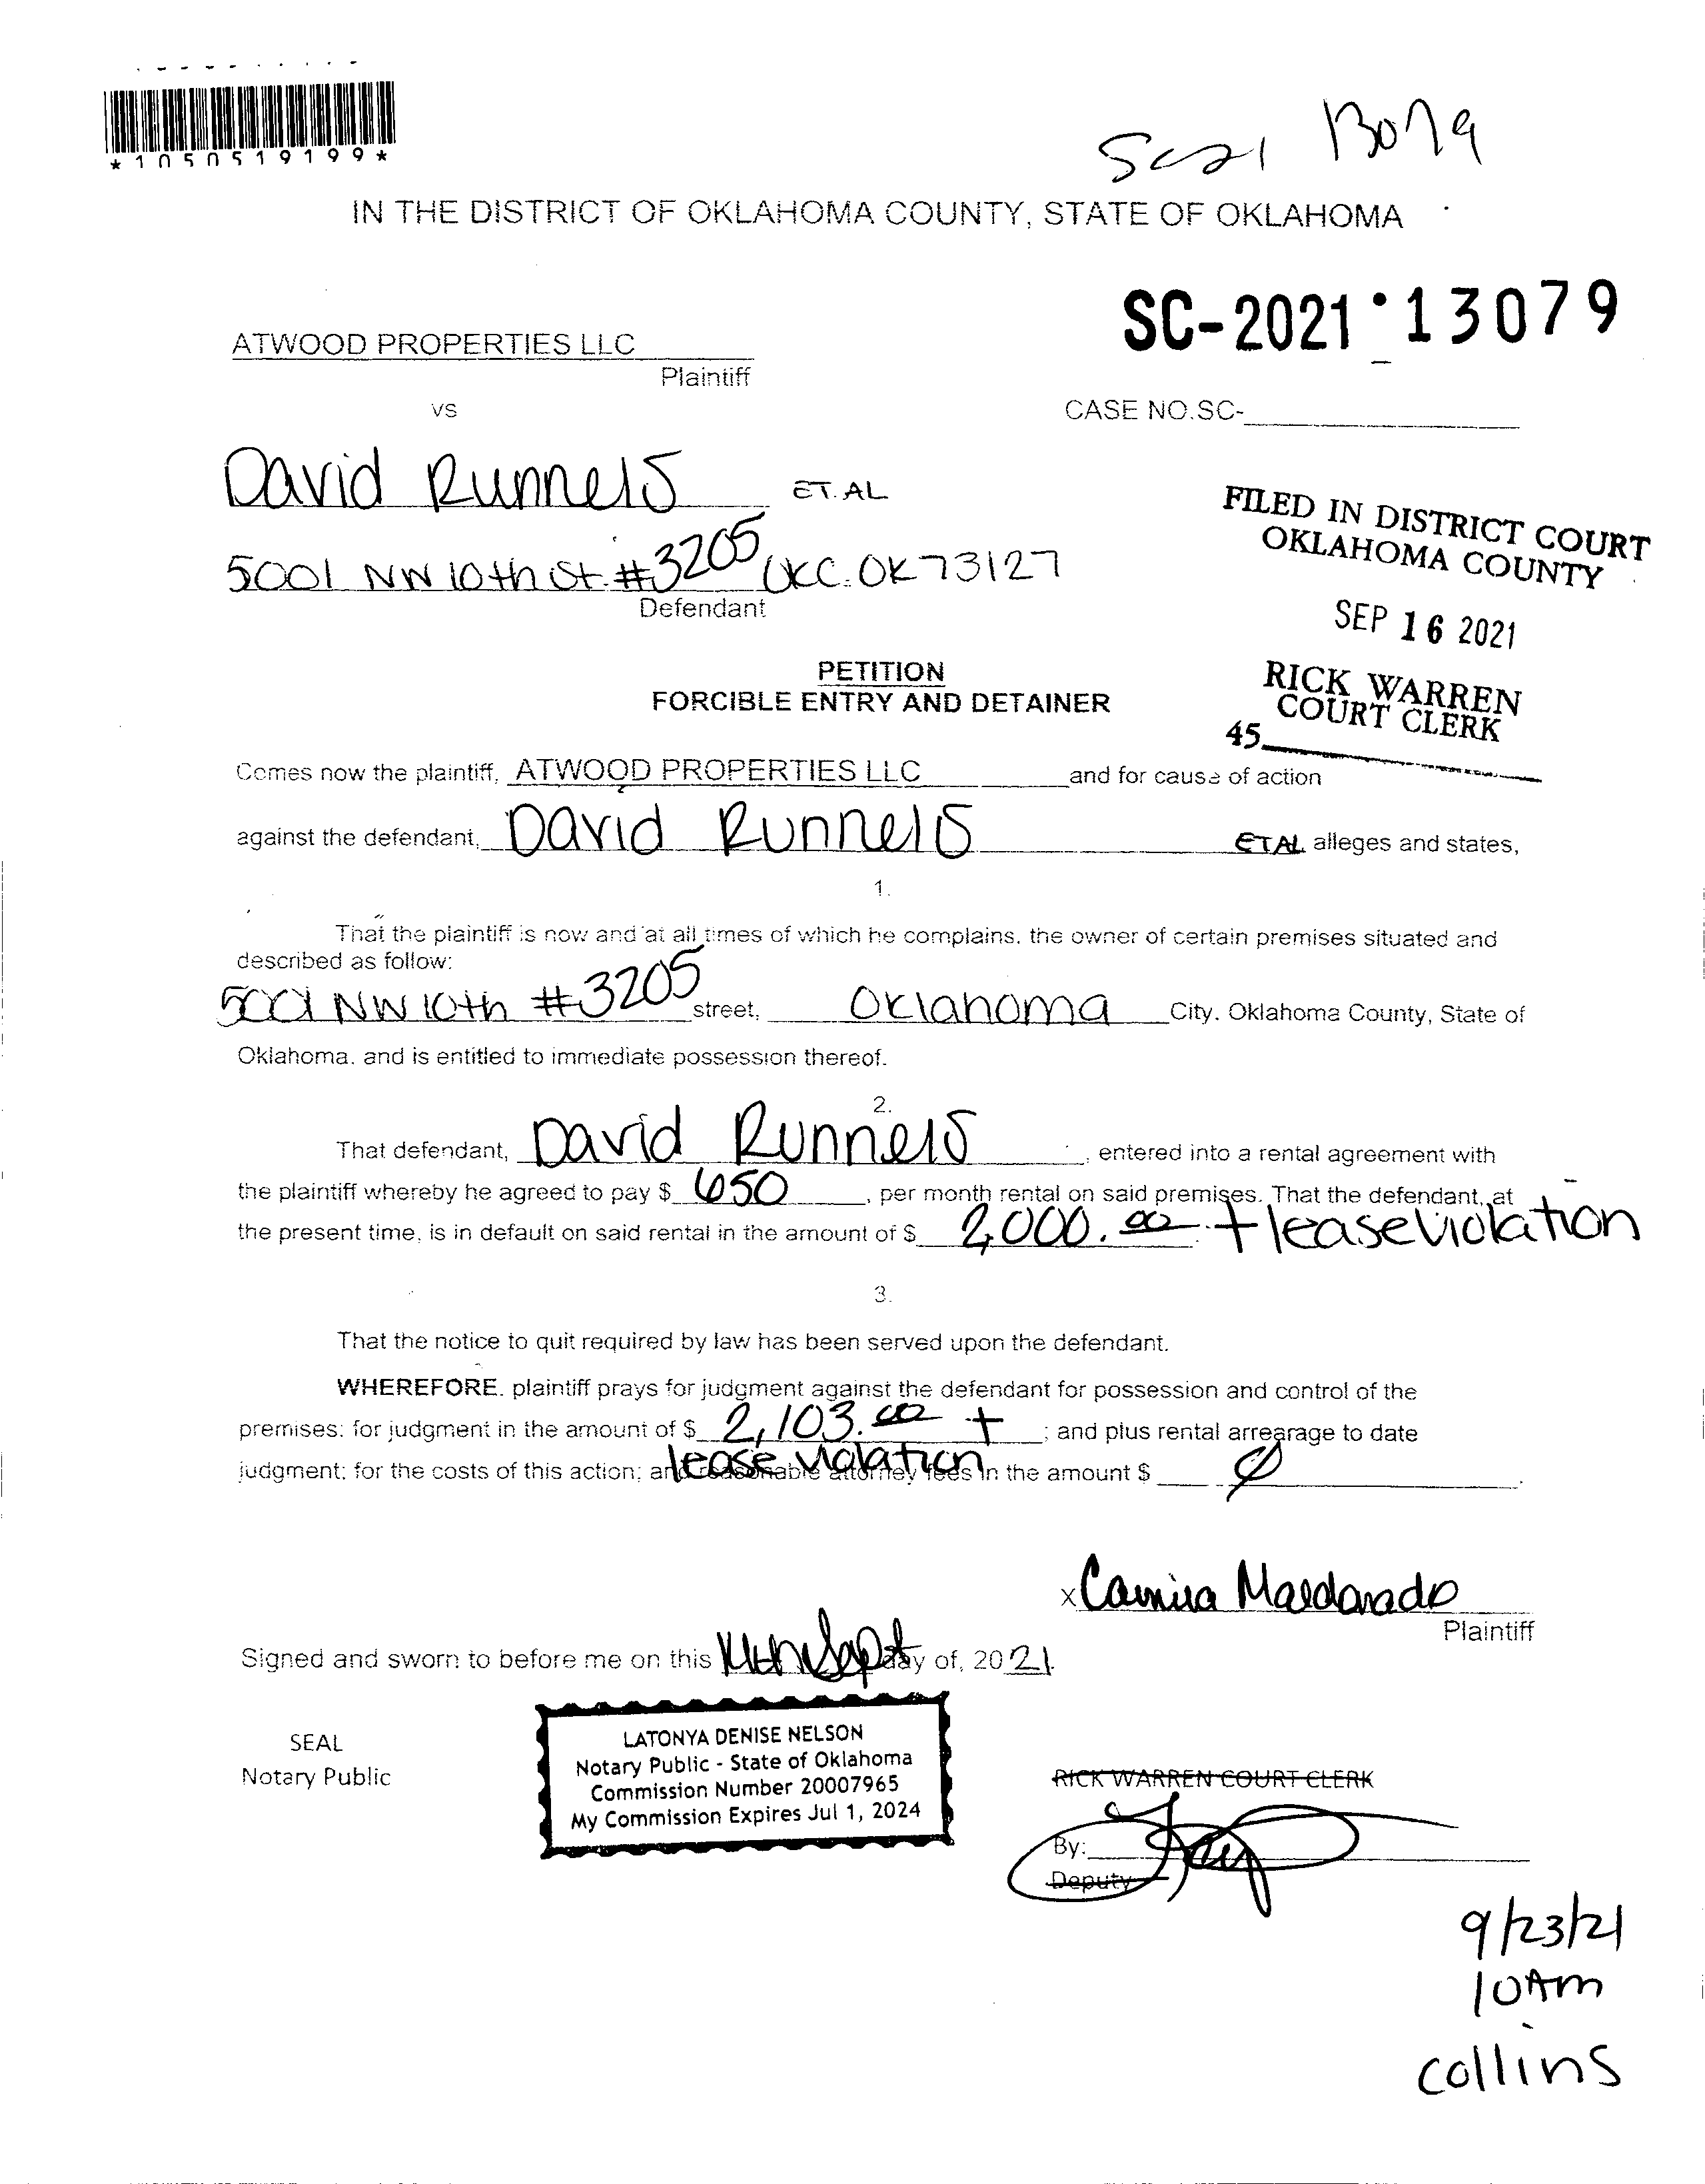 *1050519199*
SC21 13079
IN THE DISTRICT OF OKLAHOMA COUNTY, STATE OF OKLAHOMA
SC-2021 13079
ATWOOD PROPERTIES LLC
Plaintiff
vs
CASE NO.SC-
David Runnels ET.AL
5001 NW 10th St. #3205 OKC. OK 73127
Defendant
FILED IN DISTRICT COURT
OKLAHOMA COUNTY
SEP 16 2021
RICK WARREN
COURT CLERK
45
PETITION
FORCIBLE ENTRY AND DETAINER
Comes now the plaintiff, ATWOOD PROPERTIES LLC and for cause of action
against the defendant, David Runnels ETAL alleges and states,
1.
That the plaintiff is now and at all times of which he complains, the owner of certain premises situated and
described as follow:
5001 NW 10th #3205 street, Oklahoma City, Oklahoma County, State of
Oklahoma, and is entitled to immediate possession thereof.
2.
That defendant, David Runnels, entered into a rental agreement with
the plaintiff whereby he agreed to pay $ 650, per month rental on said premises. That the defendant, at
the present time, is in default on said rental in the amount of $ 2,000.00 + lease violation
3.
That the notice to quit required by law has been served upon the defendant.
WHEREFORE, plaintiff prays for judgment against the defendant for possession and control of the
premises; for judgment in the amount of $ 2,103.00 + ; and plus rental arrearage to date
lease violation
judgment; for the costs of this action; and reasonable attorney fees in the amount $ Ø
x Camila Maldonado
Plaintiff
Signed and sworn to before me on this 16th Sept day of, 2021.
SEAL
Notary Public
LATONYA DENISE NELSON
Notary Public - State of Oklahoma
Commission Number 20007965
My Commission Expires Jul 1, 2024
RICK WARREN COURT CLERK
By:
Deputy
9/23/21
10Am
collins